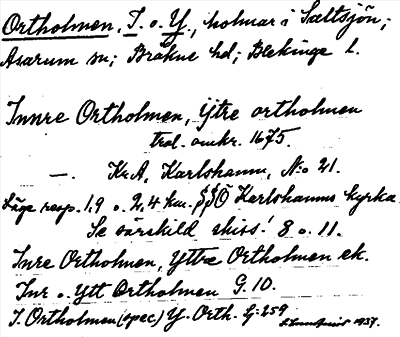 Ortholmen, I. o. Y., holmar i Saltsjön;
Asarum sn; Bräkne hd; Blekinge l.
Innre Ortholmen, Ytre ortholmen
trol. omkr. 1675.
—. Kr.A, Karlshamn, N:o 21.
Läge resp. 1,9 o. 2,4 km. SSO Karlshamns kyrka.
Se särskild skiss! 8 o. 11.
Inre Ortholmen, Yttre Ortholmen ek.
Inr o. Ytt Ortholmen G. 10.
I. Ortholmen (spec) Y. Orth. Gj: 259
1937.